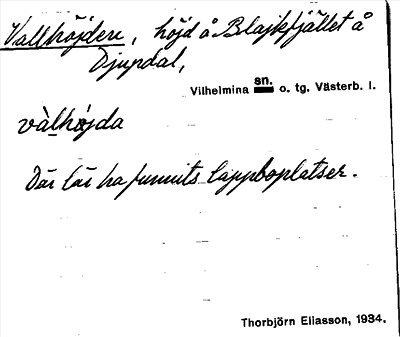 Vallhöjden, höjd å Blajkfjället å
Djupdal,
Vilhelmina sn. o. tg. Västerb. l.
vàlhöjda
Där lär ha funnits lappboplatser.
Thorbjörn Eliasson, 1934.